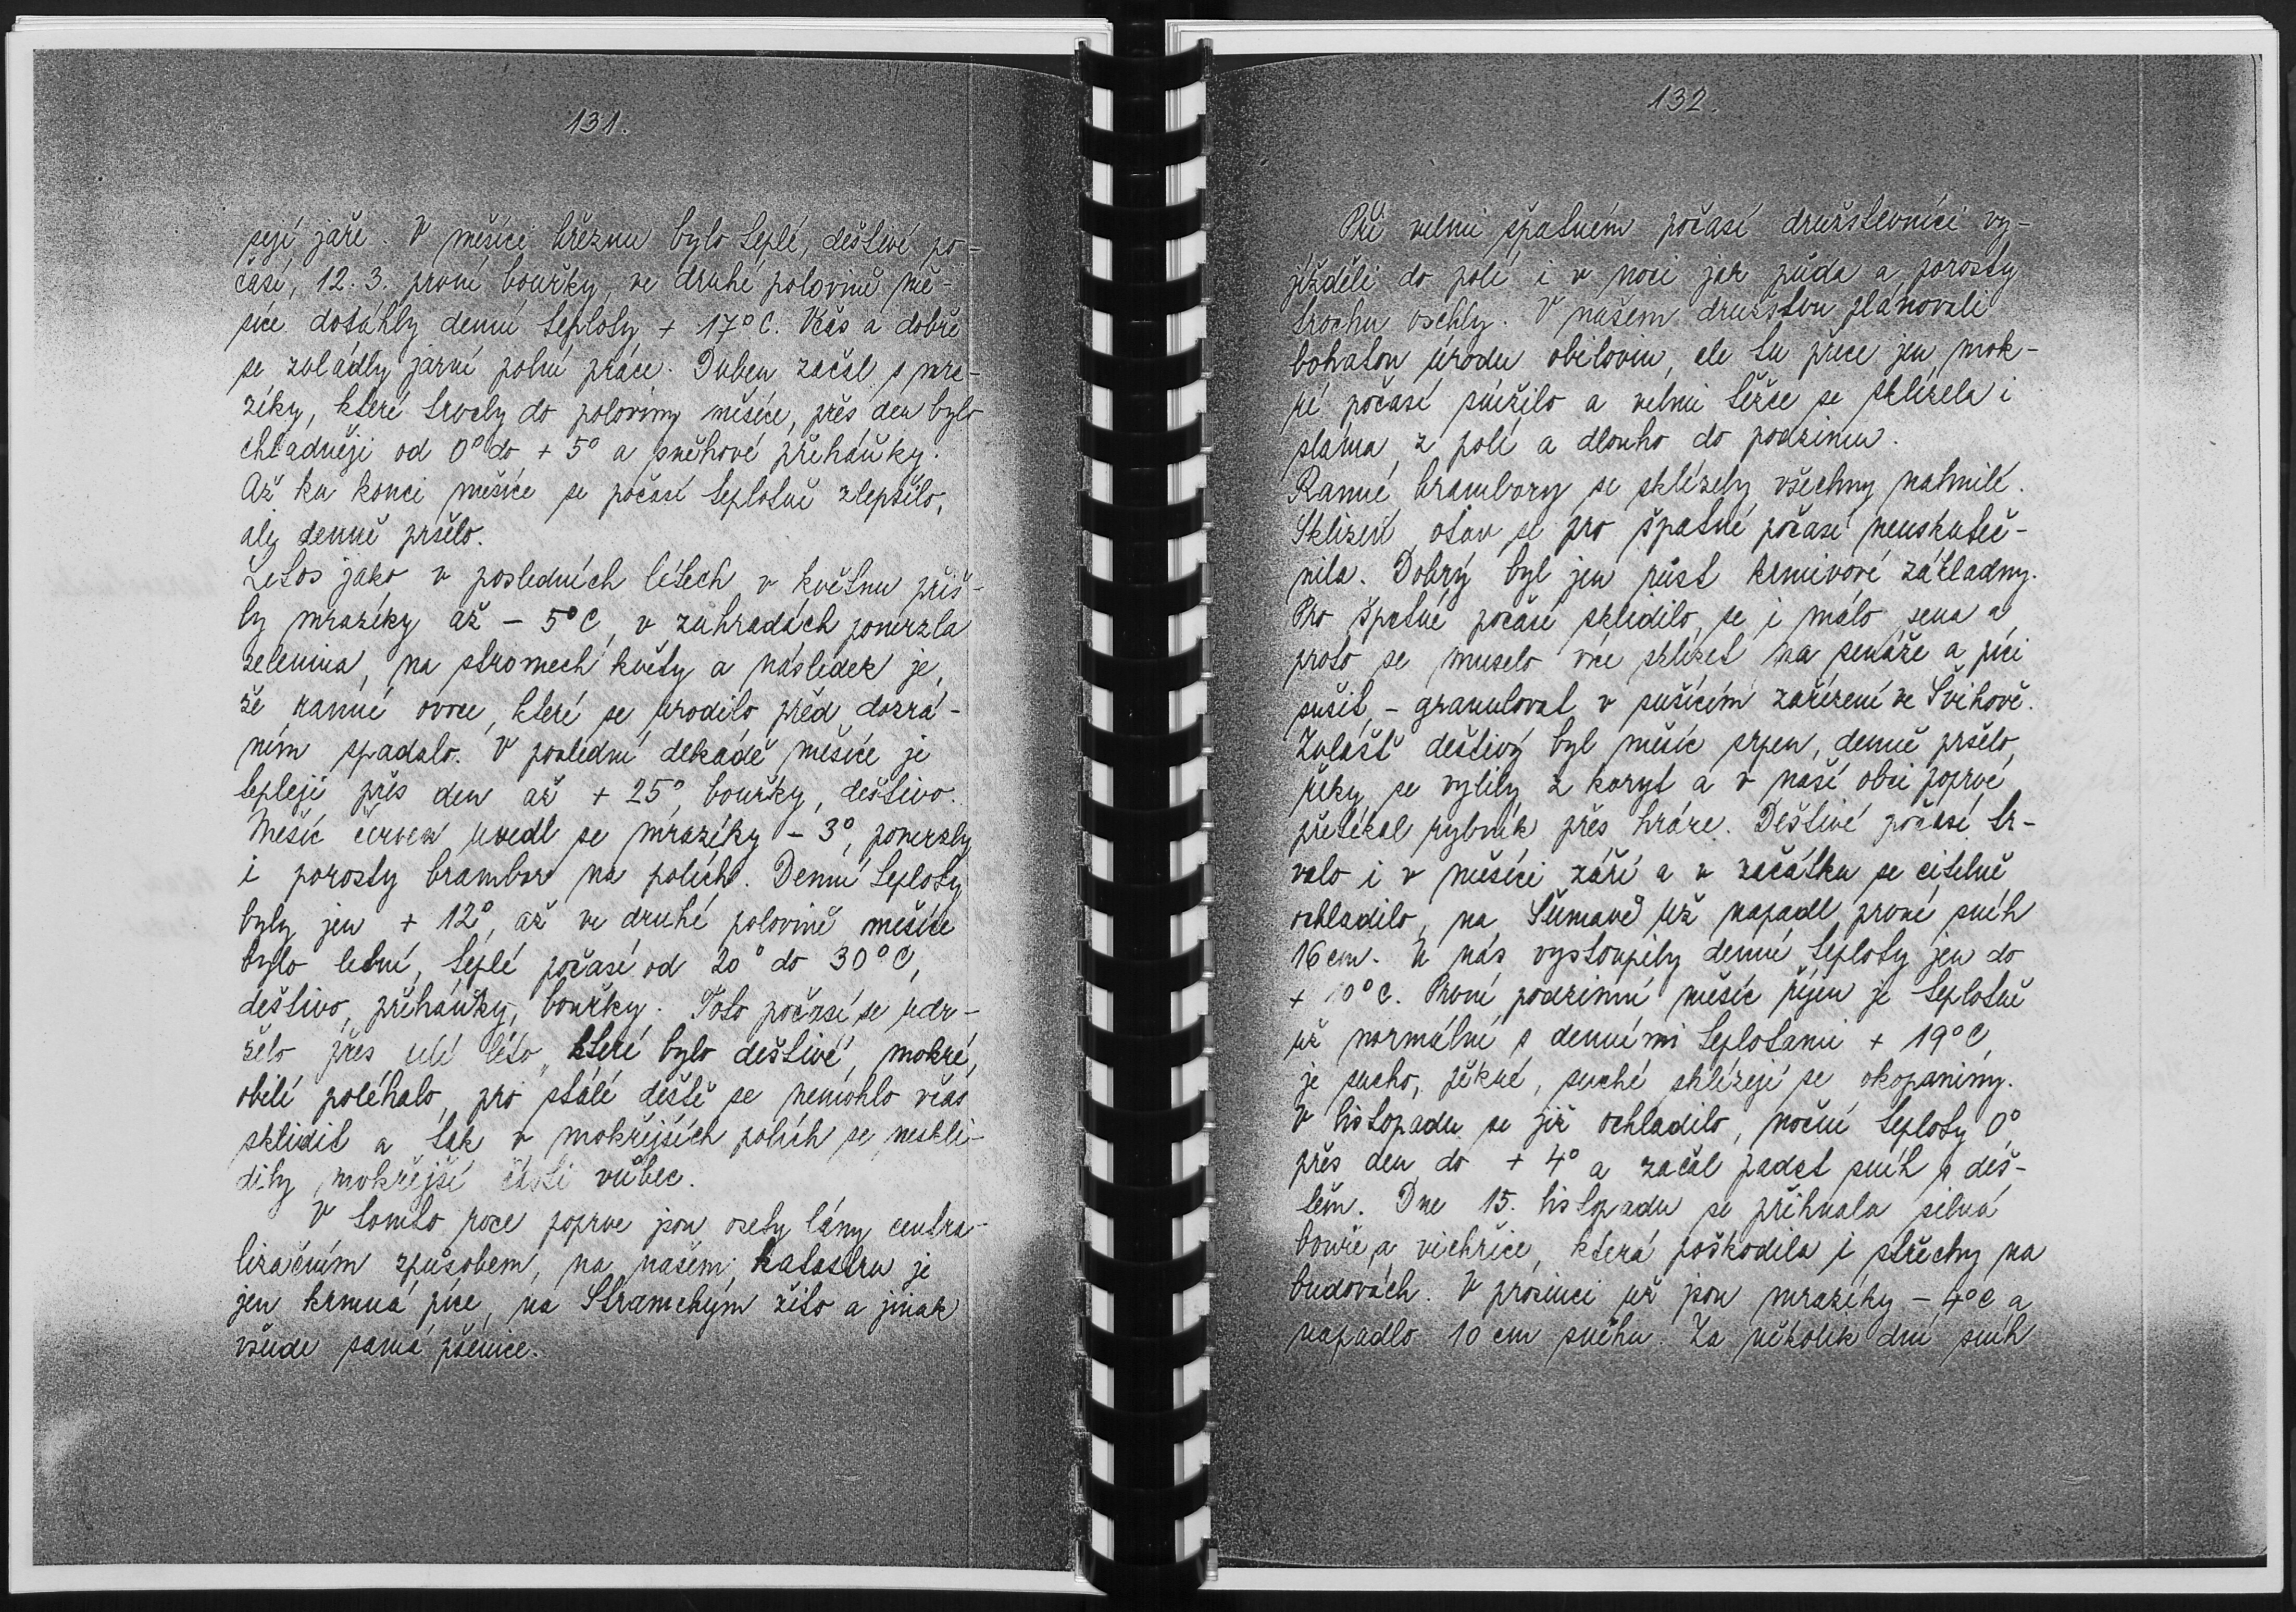 131.
sejí jaře. V měsíci březnu bylo teplé, deštivé po-
časí, 12. 3. první bouřky, ve druhé polovině mě-
síce dosáhly denní teploty + 17°C. Včas a dobře
se zvládly jarní polní práce. Duben začal s mra-
zíky, které trvaly do poloviny měsíce, přes den bylo
chladněji od 0° do + 5° a sněhové přeháňky.
Až ku konci měsíce se počasí teplotně zlepšilo,
ale denně pršelo.
Letos jako v posledních létech v květnu přiš-
ly mrazíky až - 5°C, v zahradách pomrzla
zelenina, na stromech květy a následek je,
že ranné ovoce, které se urodilo před dozrá-
ním spadalo. V poslední dekádě měsíce je
tepleji přes den až + 25°, bouřky, deštivo.
Měsíc červen uvedl se mrazíky - 3°, pomrzly
i porosty brambor na polích. Denní teploty
byly jen + 12°, až ve druhé polovině měsíce
bylo letní, teplé počasí od 20° do 30°C,
deštivo, přeháňky, bouřky. Toto počasí se udr-
želo přes celé léto, které bylo deštivé, mokré,
obilí poléhalo, pro stálé deště se nemohlo včas
sklidit a tak v mokřejších polích se neskli-
dily mokřejší části vůbec.
V tomto roce poprve jsou osety lány centra-
lizačním způsobem, na našem katastru je
jen krmná píce, na Strámchým žito a jinak
všude samá pšenice.
132.
Při velmi špatném počasí družstevníci vy-
jížděli do polí i v noci jak půda a porosty
trochu oschly. V našem družstvu plánovali
bohatou úrodu obilovin, ale tu přece jen mok-
ré počasí snížilo a velmi těžce se sklízela i
sláma z polí a dlouho do podzimu.
Ranné brambory se sklízely všechny nahnilé.
Sklizeň otav se pro špatné počasí neuskuteč-
nila. Dobrý byl jen růst krmivové základny.
Pro špatné počasí sklidilo se i málo sena a
proto se muselo více sklízet na senáže a píci
sušit - granulovat v sušícím zařízení ve Švihově.
Zvlášť deštivý byl měsíc srpen, denně pršelo,
řeky se vylily z koryt a v naší obci poprvé
přetékal rybník přes hráze. Deštivé počasí tr-
valo i v měsíci září a v začátku se citelně
ochladilo, na Šumavě už napadl první sníh
16 cm. U nás vystoupily denní teploty jen do
+ 10°C. První podzimní měsíc říjen je teplotně
už normální s denními teplotami + 19°C,
je sucho, pěkné, suché sklízejí se okopaniny.
V listopadu se již ochladilo, noční teploty 0°
přes den do + 4° a začal padat sníh s deš-
těm. Dne 15. listopadu se přihnala silná
bouře a vichřice, která poškodila i střechy na
budovách. V prosinci už jsou mrazíky - 4°C a
napadlo 10 cm sněhu. Za několik dní sníh